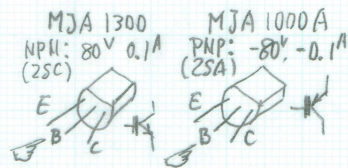 MJA 1300
NPN: 80V 0.1A
(2SC)
E
B
C
MJA 1000A
PNP: -80V, -0.1A
(2SA)
E
B
C